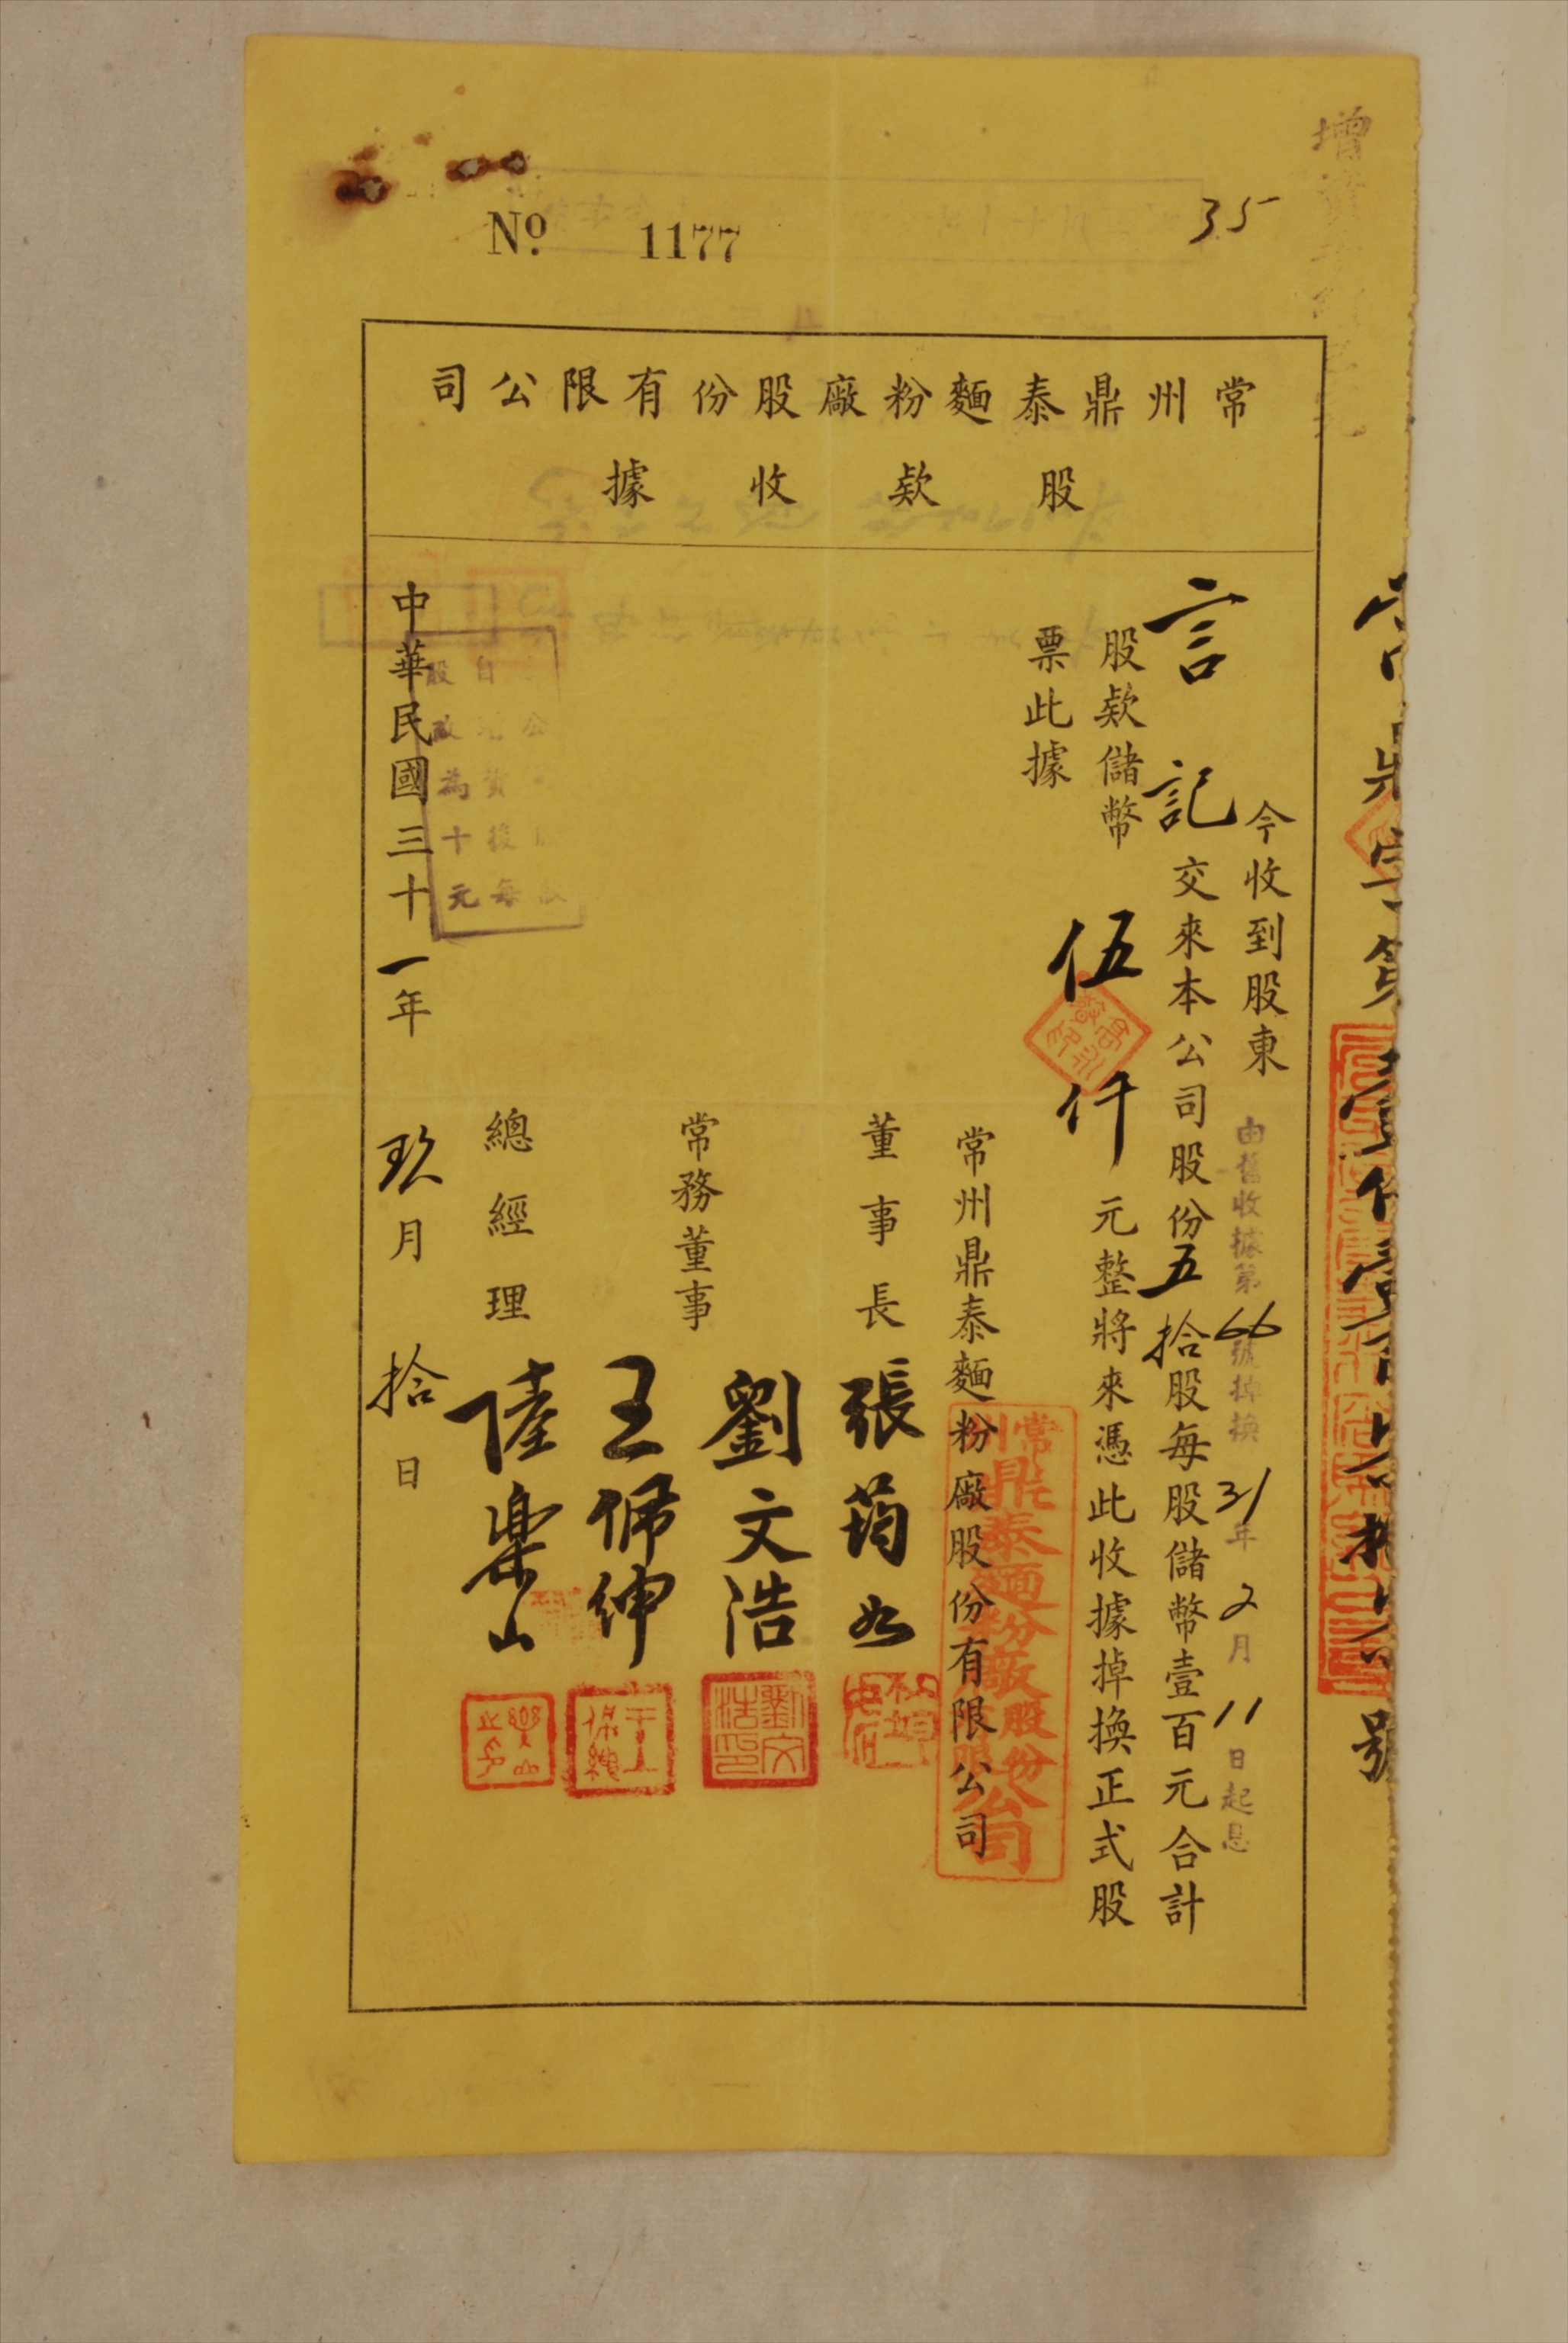 增資
35
No. 1177
常州鼎泰麵粉廠股份有限公司
股欵收據
今收到股東
由舊收據第66號掉換 31年2月11日起息
言記交來本公司股份五拾股每股儲幣壹百元合計
股欵儲幣伍仟元整將來憑此收據掉換正式股
票此據
常州鼎泰麵粉廠股份有限公司
常州鼎泰麵粉廠股份有限公司
董事長 張筠如
常務董事 劉文浩
劉文浩印
王佩紳
總經理 陸樂山
樂山
自增資後每
股改為十元
中華民國三十一年玖月拾日
號